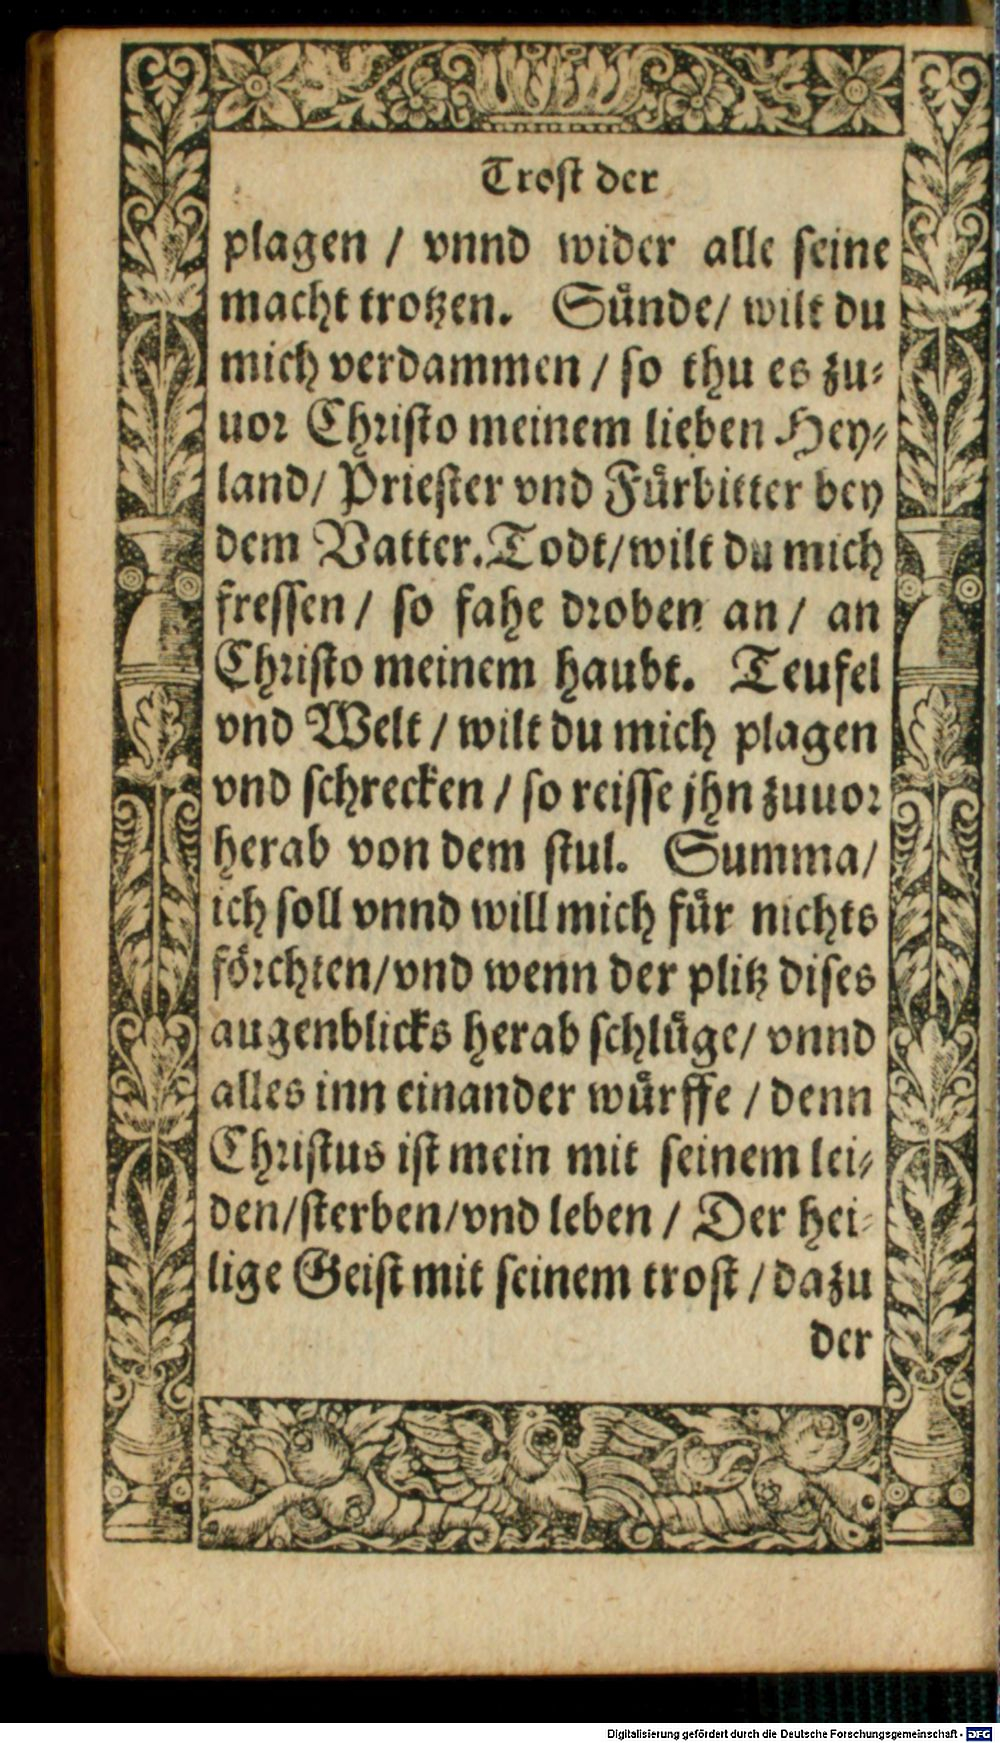 Trost der
plagen / vnnd wider alle seine
macht trotzen. Sünde/ wilt du
mich verdammen / so thu es zu⸗
uor Christo meinem lieben Hey⸗
land/ Priester vnd Fürbitter bey
dem Vatter. Todt/wilt du mich
fressen / so fahe droben an / an
Christo meinem haubt. Teufel
vnd Welt / wilt du mich plagen
vnd schrecken / so reisse jhn zuuor
herab von dem stul. Summa/
ich soll vnnd will mich für nichts
förchten/vnd wenn der plitz dises
augenblicks herab schlüge/ vnnd
alles inn einander würffe / denn
Christus ist mein mit seinem lei⸗
den/sterben/vnd leben / Der hei⸗
lige Geist mit seinem trost / dazu
der
Digitalisierung gefördert durch die Deutsche Forschungsgemeinschaft - DFG